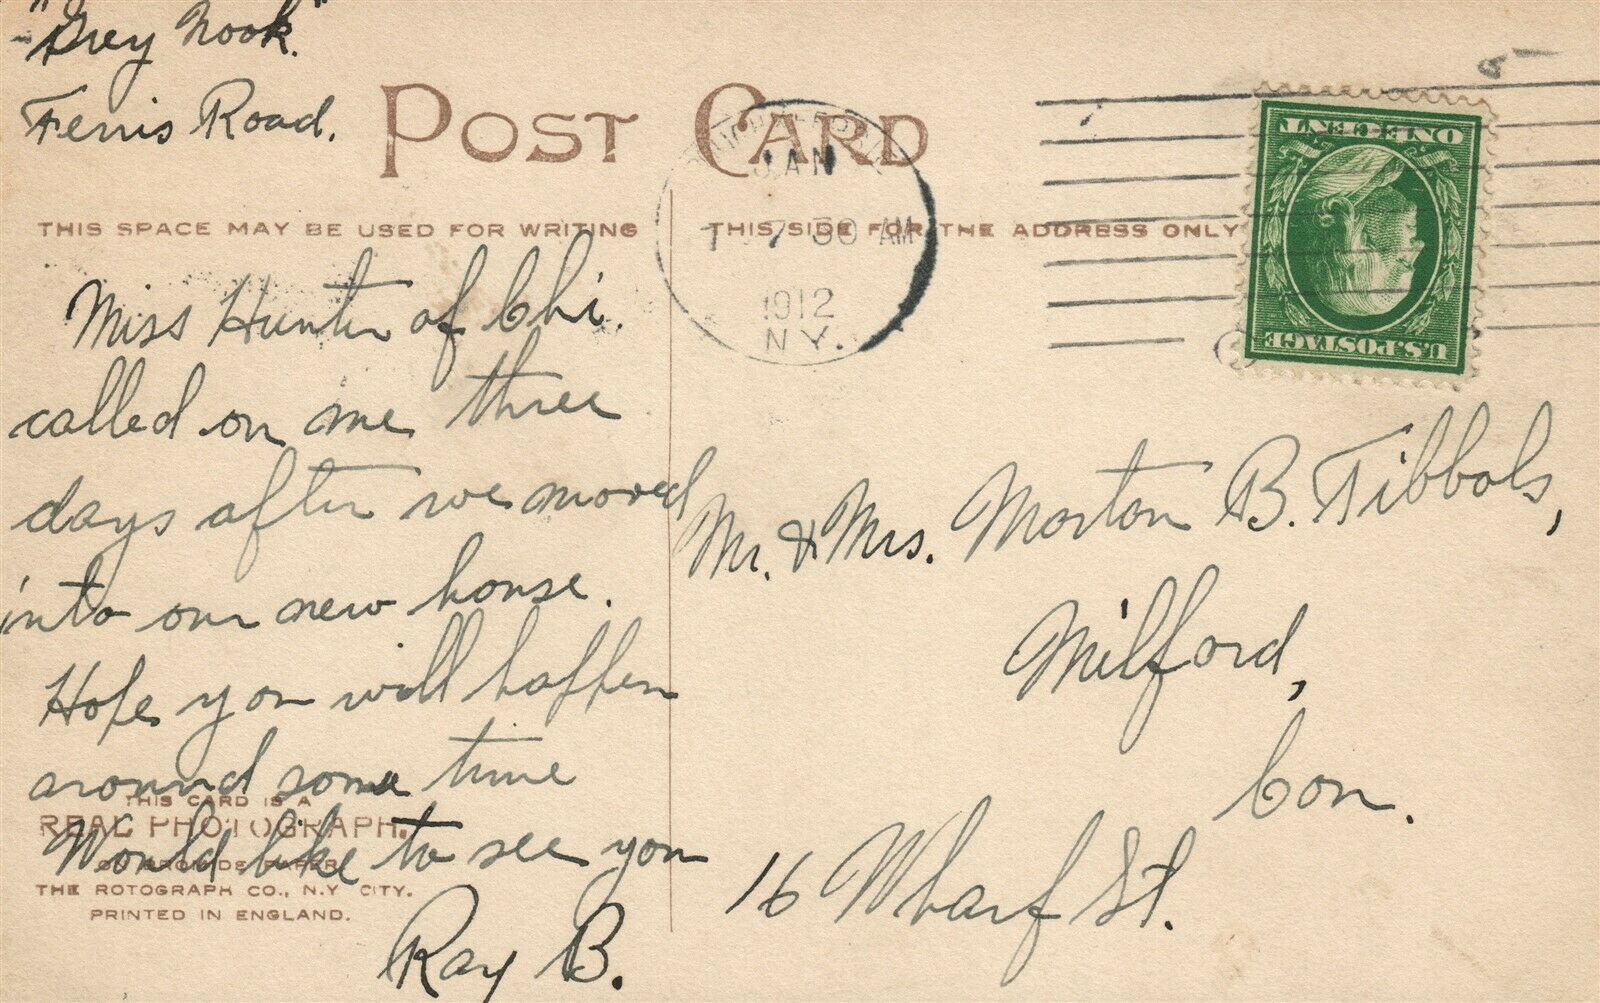 "Grey Nook."
Ferris Road.
POST CARD
THIS SPACE MAY BE USED FOR WRITING
THIS SIDE FOR THE ADDRESS ONLY
JAN
7 30 AM
1912
N.Y.
ONE CENT
U.S. POSTAGE
Miss Hunter of Chi.
called on me three
days after we moved
into our new house.
Hope you will happen
around some time
Would like to see you
Ray B.
THIS CARD IS A
REAL PHOTOGRAPH.
ON BROMIDE PAPER
THE ROTOGRAPH CO., N.Y CITY.
PRINTED IN ENGLAND.
Mr. & Mrs. Morton B. Tibbals,
Milford,
Con.
16 Wharf St.